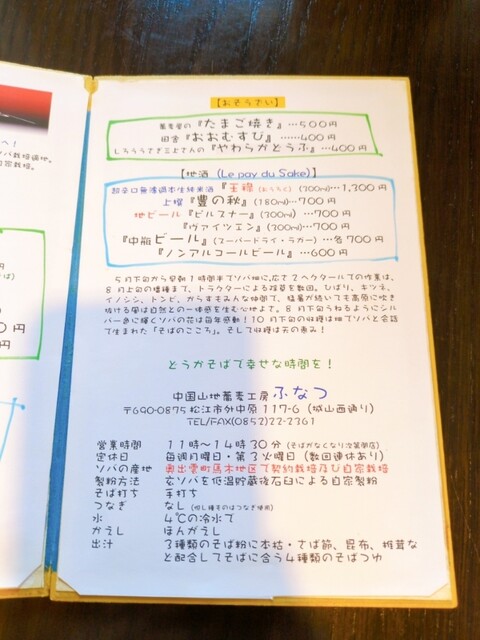 へ！
ソバ栽培適地。
家栽培。
そば）
円
0円
円
【おそうざい】
蕎麦屋の『たまご焼き』…500円
田舎『おおむすび』……400円
しろうさぎ三上さんの『やわらかどうふ』…400円
【地酒 (Le pay du Sake)】
超辛口無濾過本生純米酒『王祿(おうろく) (200ml)…1,300円
上撰『豊の秋』(180ml)…700円
地ビール『ピルスナー』(300ml) …700円
『ヴァイツェン』(300ml)…700円
『中瓶ビール』(スーパードライ・ラガー) …各700円
『ノンアルコールビール』…600円
5月下旬から早朝1時間半でソバ畑に立て2ヘクタールでの作業は、
8月上旬の播種まで、トラクターによる雑草を数回。ひばり、キツネ、
イノシシ、トンビ、からすもみんな仲間で、猛暑が続いても高原に吹き
抜ける風は自然との一体感を生む心地よさ。8月下旬うねるようにシル
バー色に輝くソバの花は毎年感動！10月下旬の収穫は畑でソバと会話
で生まれた「そばのこころ」。そして収穫は天の恵み！
どうかそばで幸せな時間を！
中国山地蕎麦工房 ふなつ
〒690-0875 松江市外中原117-6 (城山西通り)
TEL/FAX(0852)22-2361
営業時間 11時～14時30分(そばがなくなり次第閉店)
定休日 毎週月曜日・第3火曜日(数回連休あり)
ソバの産地 奥出雲町馬木地区で契約栽培及び自家栽培
製粉方法 玄ソバを低温貯蔵後石臼による自家製粉
そば打ち 手打ち
つなぎ なし(但し種ものはつなぎ使用)
水 4℃の冷水で
かえし ほんがえし
出汁 3種類のそば粉に本枯・さば節、昆布、椎茸な
ど配合してそばに合う4種類のそばつゆ